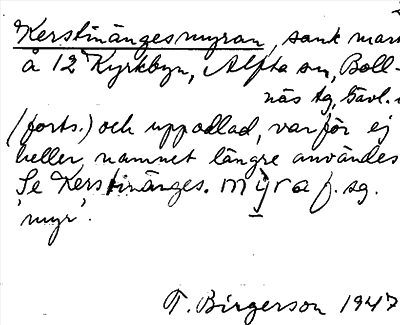 Kerstinängesmyran, sank mar
å 12 Kyrkbyn, Alfta sn, Boll-
näs tg, Gävl.
(forts.) och uppodlad, varför ej
heller namnet längre användes
Se Kerstinänges. myra f. sg.
'myr'.
T. Birgerson 1947